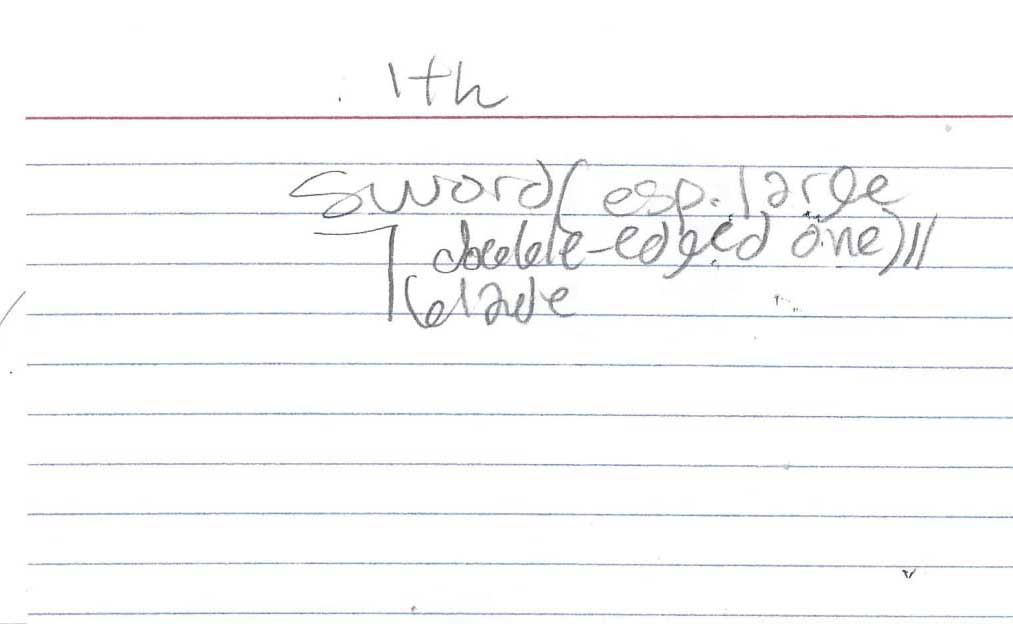 1th
sword (esp. large
double-edged one) //
blade